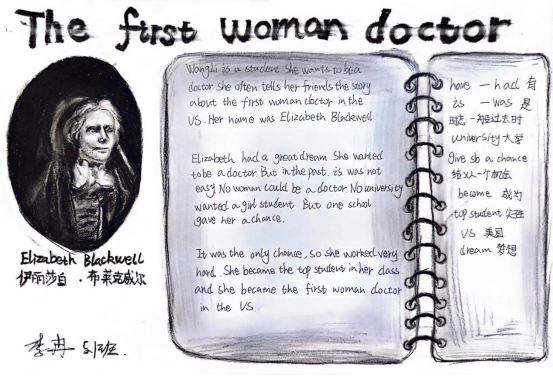 The first woman doctor
Wang Li is a student. She wants to be a
doctor. She often tells her friends the story
about the first woman doctor in the
US. Her name was Elizabeth Blackwell.
Elizabeth had a great dream. She wanted
to be a doctor. But in the past, is was not
easy. No woman could be a doctor. No university
wanted a girl student. But one school
gave her a chance.
It was the only chance, so she worked very
hard. She became the top student in her class.
and she became the first woman doctor
in the VS.
have — had 有
is — was 是
时态 一般过去时
university 大学
give sb a chance
给某人一个机会
become 成为
top student 尖子生
VS 美国
dream 梦想
Elizabeth Blackwell
伊丽莎白·布莱克威尔
李冉 5.1班.